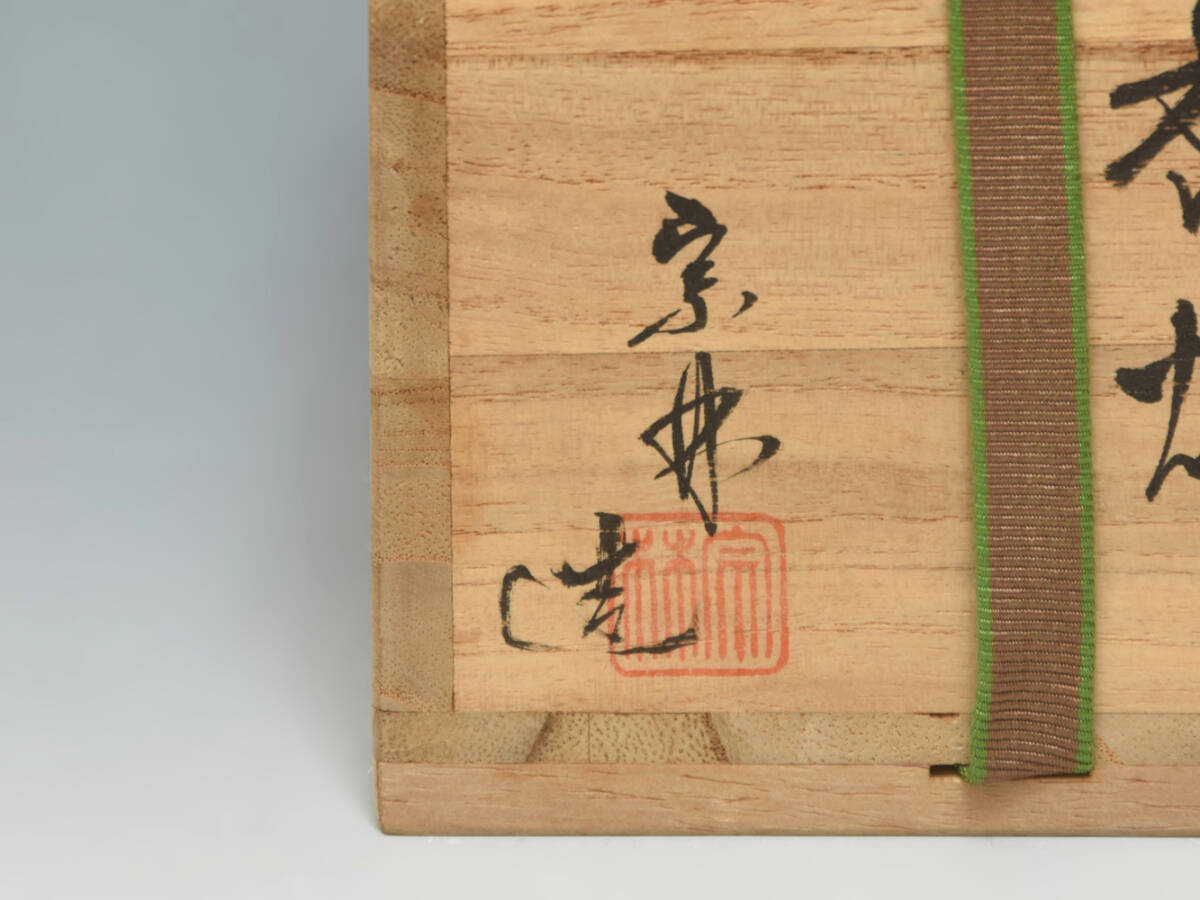 宗林
造
宗林